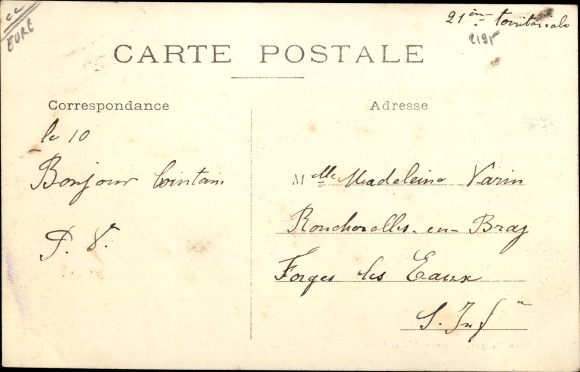 cc
EURE
21ème territoriale
CARTE POSTALE
Correspondance
Adresse
le 10
Bonjour lointain
P. V.
Mlle Madeleine Varin
Roncherolles-en-Bray
Forges les Eaux
S. Infre